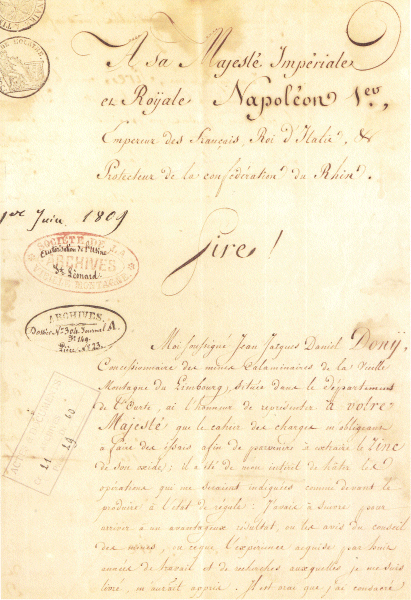 A Sa Majesté Impériale
et Royale Napoléon 1er,
Empereur des Français, Roi d'Italie, &
Protecteur de la confédération du Rhin.
1er Juin 1809
Sire!
SOCIÉTÉ DE LA
Exploitation de l'Usine
ARCHIVES
St Léonard
VIEILLE MONTAGNE
ARCHIVES
Dossier No 304 Journal A.
No 149
Pièce No 23
11 19 60
Moi soussigné Jean Jacques Daniel Dony,
Concessionnaire des mines Calaminaires de la Vieille
Montagne du Limbourg, située dans le département
de l'Ourte, ai l'honneur de représenter à votre
Majesté que le cahier des charges m'obligeait
à faire des essais afin de parvenir à extraire le Zinc
de son oxide; il était de mon intérêt de hâter les
opérations qui me seraient indiquées comme devant le
produire à l'état de régule. J'avais à suivre pour
arriver à un avantageux résultat, ou les avis du conseil
des mines, ou ce que l'expérience acquise par trois
années de travail et de recherches auxquelles je me suis
livré, m'aurait appris. Il est vrai que j'ai consacré